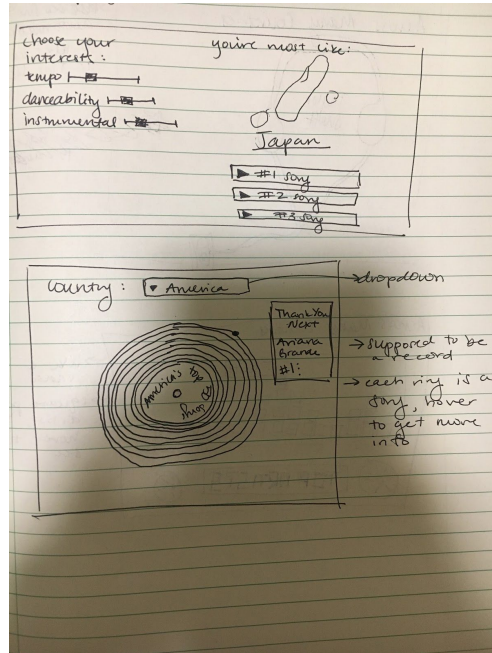 choose your
interests:
tempo
danceability
instrumental
you're most like:
Japan
#1 song
#2 song
#3 song
Country:
America
→dropdown
Thank You
Next
Ariana
Grande
#1:
America's top
songs
→ supposed to be
a record
→ each ring is a
song, hover
to get more
info